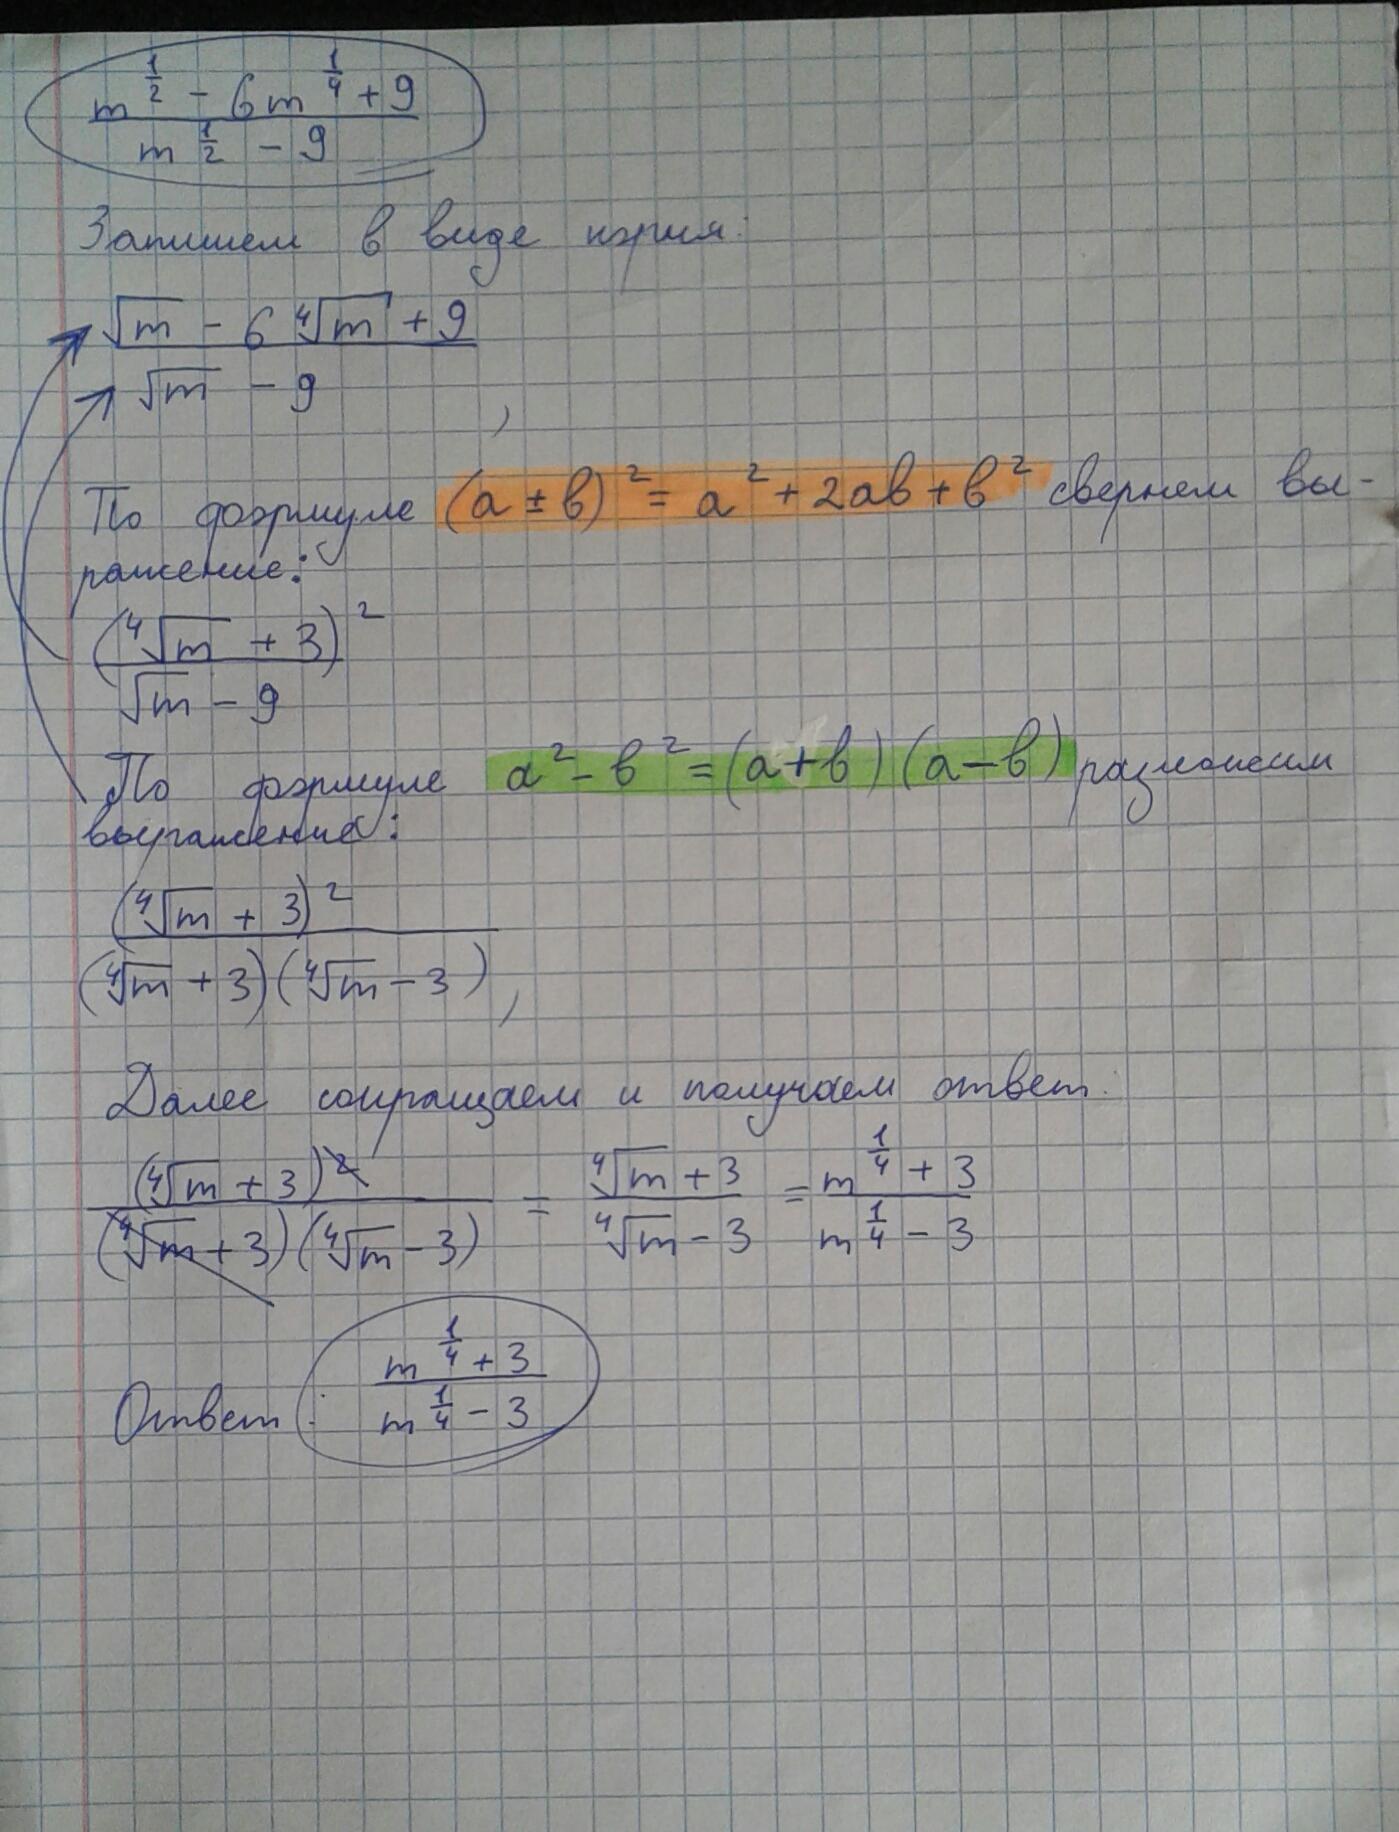 m^(1/2) - 6m^(1/4) + 9
m^(1/2) - 9
Запишем в виде корня:
√m - 6 ⁴√m + 9
√m - 9 ,
По формуле (a ± b)² = a² + 2ab + b² свернем вы-
ражение:
(⁴√m + 3)²
√m - 9
По формуле a² - b² = (a + b)(a - b) разложим
выражение:
(⁴√m + 3)²
(⁴√m + 3)(⁴√m - 3) ,
Далее сокращаем и получаем ответ.
(⁴√m + 3)² / (⁴√m + 3)(⁴√m - 3) = (⁴√m + 3) / (⁴√m - 3) = (m^(1/4) + 3) / (m^(1/4) - 3)
Ответ: (m^(1/4) + 3) / (m^(1/4) - 3)